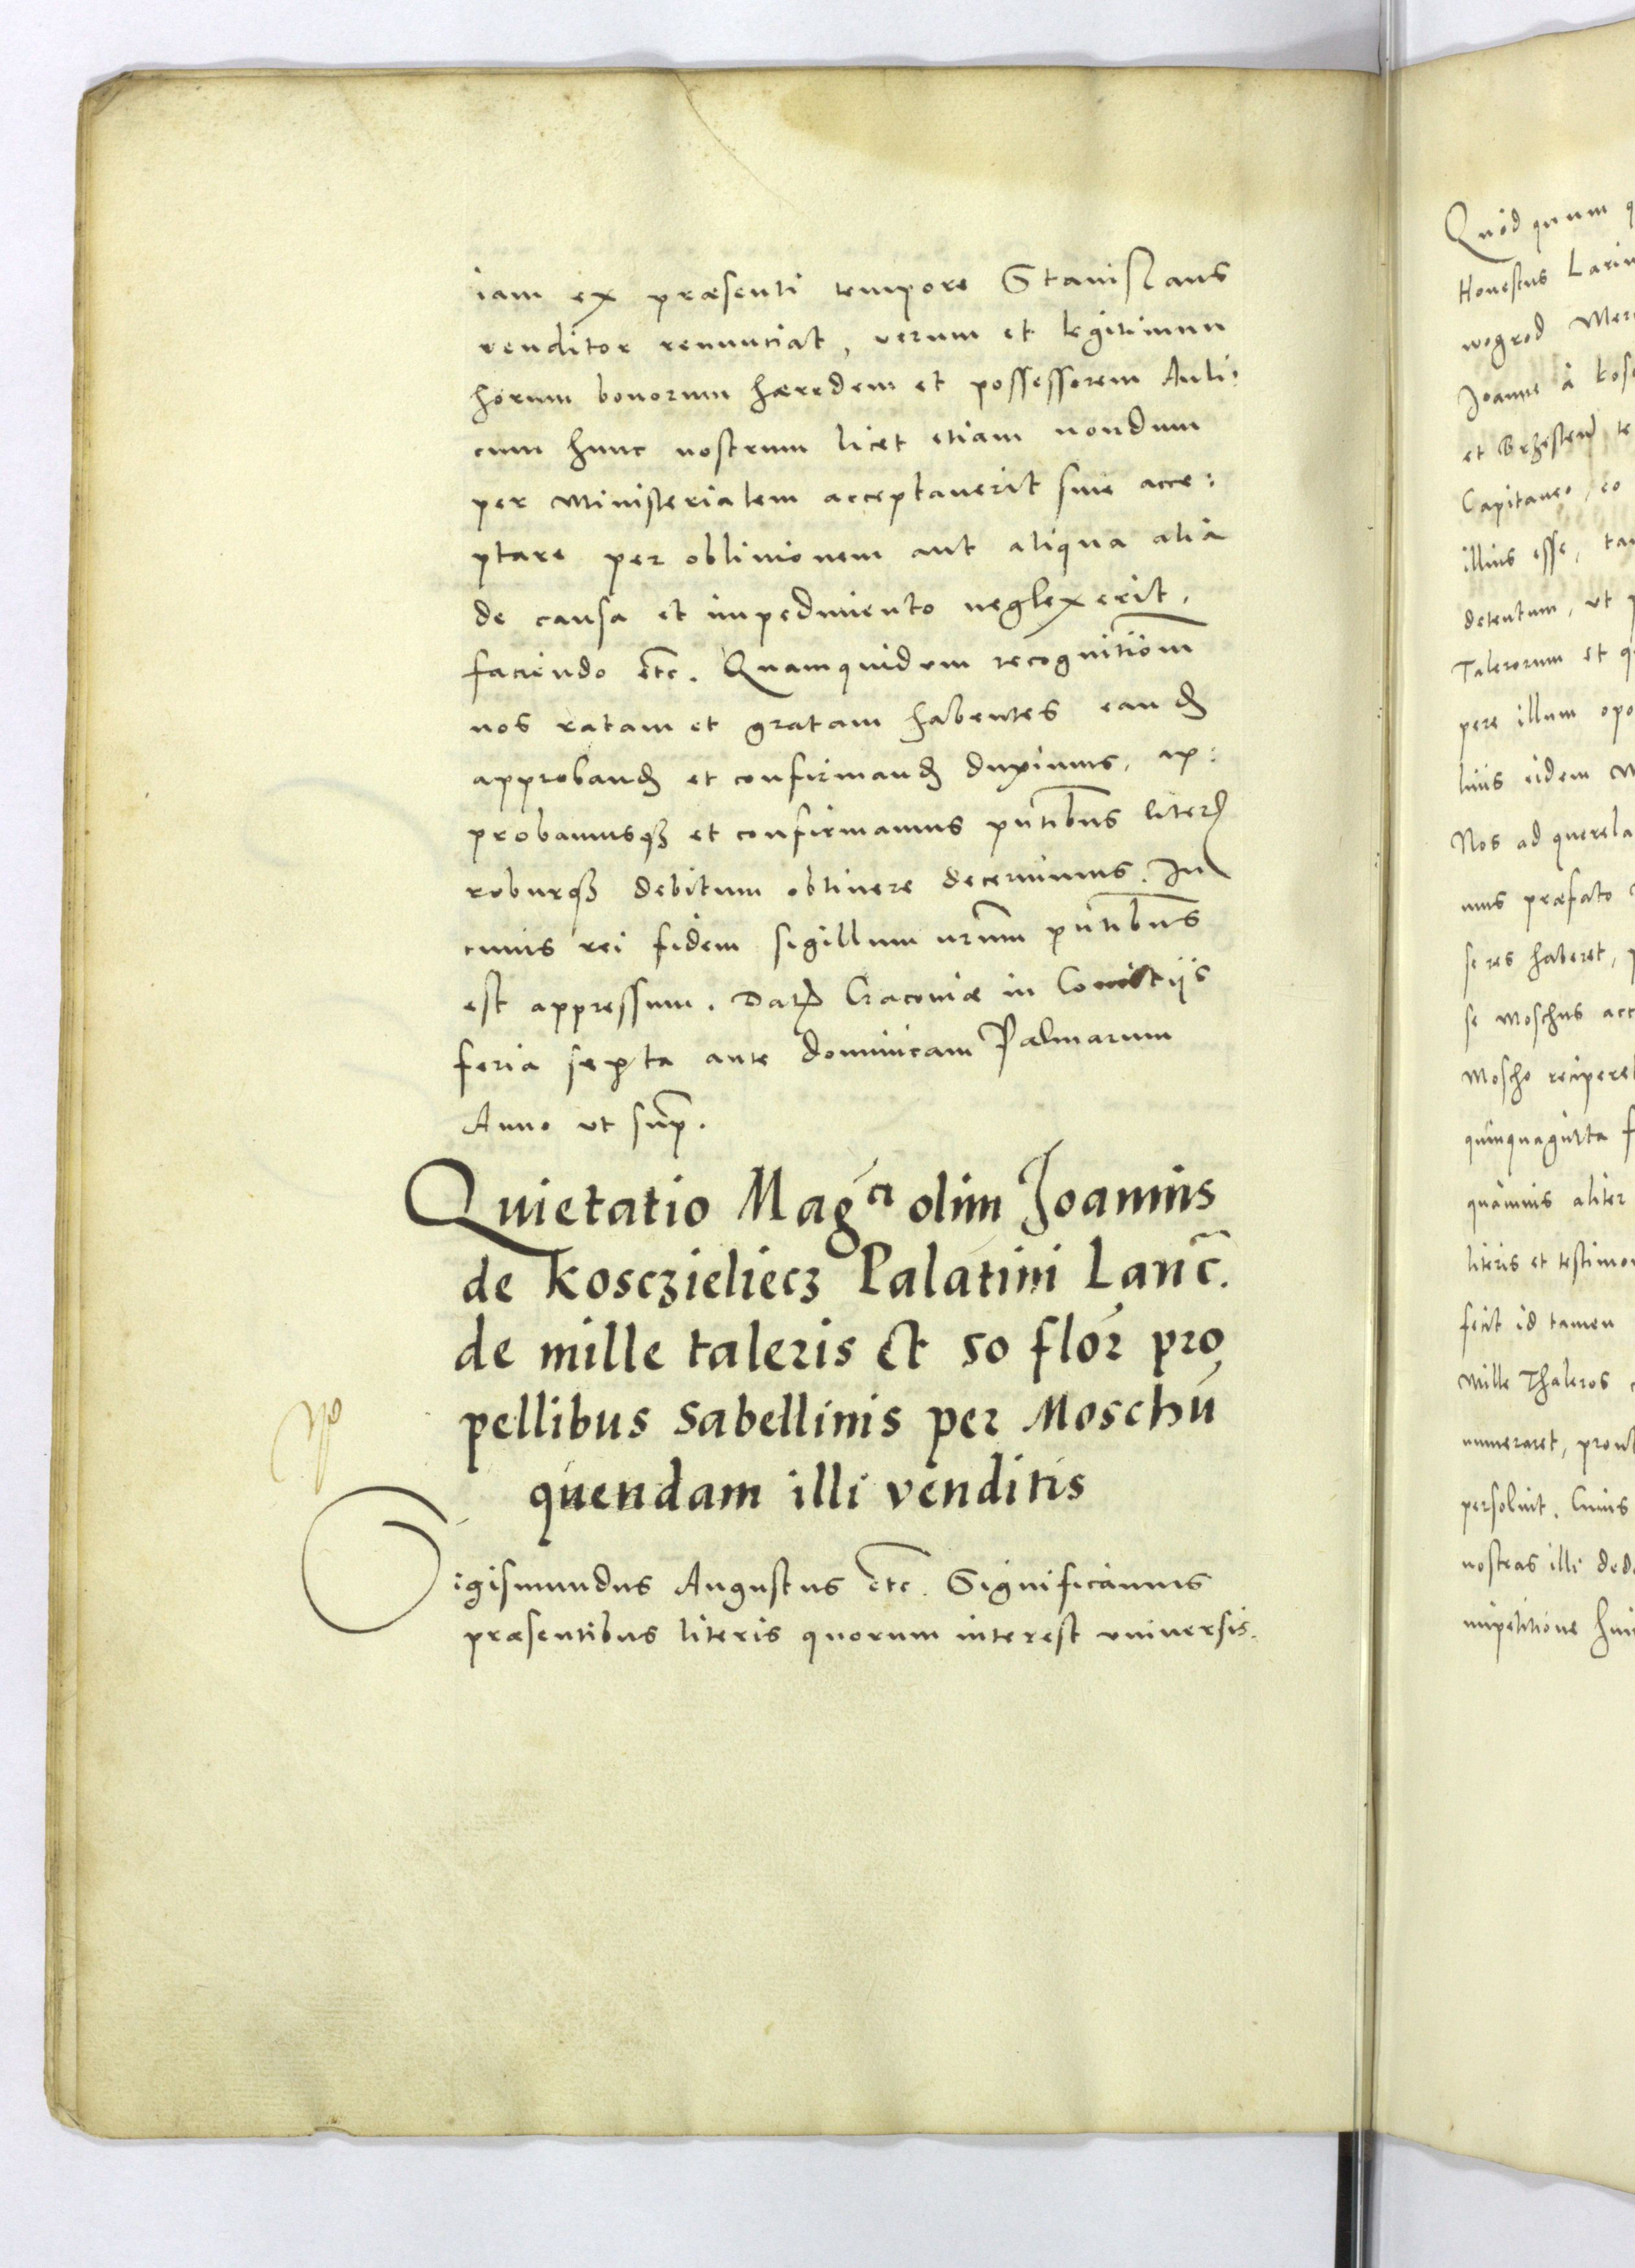 iam ex præsenti tempore Stanislaus
venditor renunciat, verum et legitimum
horum bonorum hæredem et possessorem Auli:
cum hunc nostrum licet etiam nondum
per Ministerialem acceptauerit siue acce:
ptare per obliuionem aut aliqua alia
de causa et impedimento neglexerit,
faciendo etc. Quamquidem recognitiom̄
nos ratam et gratam habentes eand
approband et confirmand duximus, ap:
probamusq et confirmamus pn̄tibus liter
roburq debitum obtinere decernimus. In
cuius rei fidem sigillum nr̄um pn̄tibus
est appressum. Dat Cracoviæ in Comitiis
feria sexta ante dominicam Palmarum
Anno ut sup̄.
Quietatio Magci olim Joannis
de Kosczieliecz Palatini Lanc̄.
de mille taleris et 50 flor pro
pellibus sabellinis per Moschū
quendam illi venditis
Sigismundus Augustus etc. Significamus
præsentibus literis quorum interest vniuersis.
Quod quum
Honestus Larin
wogrod Mer
Joanne à Kos
et Brzesten te
Capitaneo, eo
illius esse, tan
detentum, ut p
Talerorum et q
pere illum opo
lius eidem M
Nos ad querela
mus præfato
se res haberet, p
se Moschus acc
Moscho reciperet
quinquaginta f
quamuis aliter
literis et testimon
fecit id tamen
Mille Thaleros
numeraret, prout
persoluit. Cuius
nostras illi ded
impetitione hui